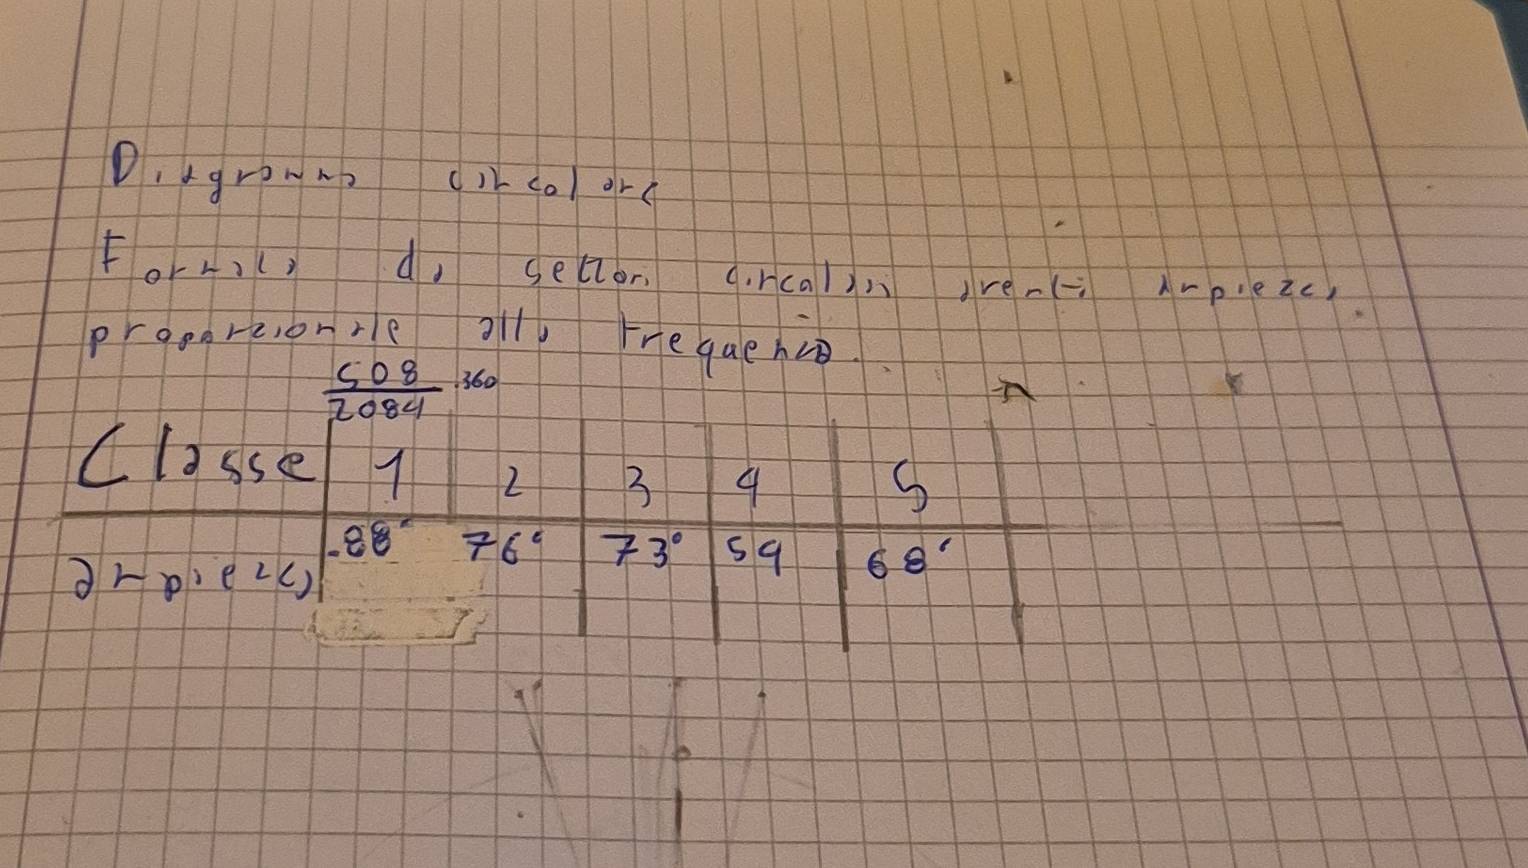 Diagramma circolare
Formato da settori circolari aventi ampiezza
proporzionale alla frequenza.
508
2084 .360
Classe 1 2 3 4 5
ampiezza 88° 76° 73° 59 68°